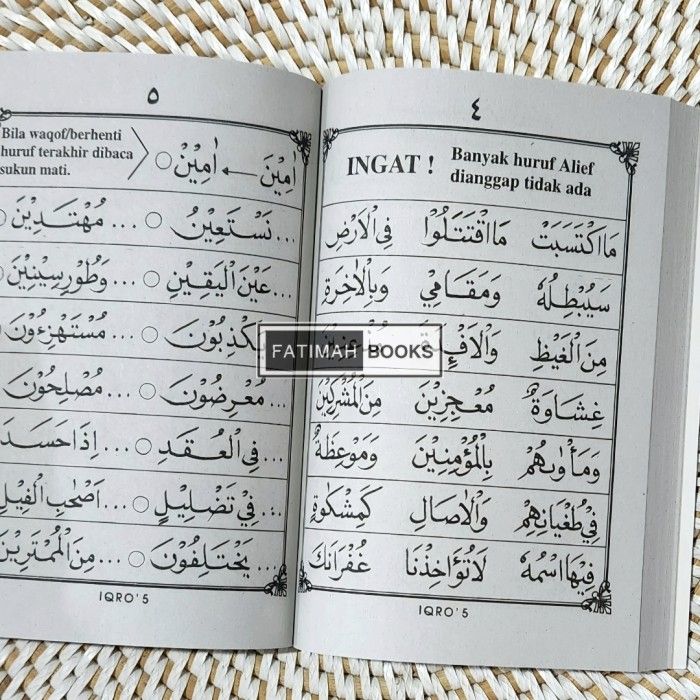 ٤
INGAT ! Banyak huruf Alief
dianggap tidak ada
مَا اكْتَسَبَتْ مَا اقْتَتَلُوْا فِى الْاَرْضِ
سَيُبْطِلُهٗ وَمَقَامِيْ وَبِالْاٰخِرَةِ
مِنَ الْغَيْظِ
غِشَاوَةٌ مُعٰجِزِيْنَ مِنَ الْمُشْرِكِيْنَ
وَمَأْوٰىهُمْ بِالْمُؤْمِنِيْنَ وَمَوْعِظَةٌ
فِيْ طُغْيَانِهِمْ وَالْاٰصَالِ كَمِشْكٰوةٍ
فِيْهَا اسْمُهٗ لَا تُؤَاخِذْنَا غُفْرَانَكَ
IQRO' 5
٥
Bila waqof/berhenti
huruf terakhir dibaca
sukun mati.
اٰمِيْنَ ← اٰمِيْنْ ○
... نَسْتَعِيْنُ ○ ... مُهْتَدِيْنَ ○
... عَيْنَ الْيَقِيْنِ ○ ... وَطُوْرِ سِيْنِيْنَ ○
يَكْذِبُوْنَ ○ ... مُسْتَهْزِءُوْنَ ○
... مُعْرِضُوْنَ ○ ... مُصْلِحُوْنَ
... فِى الْعُقَدِ ○ ... اِذَا حَسَدَ
... فِيْ تَضْلِيْلٍ ○ ... اَصْحٰبِ الْفِيْلِ
... يَخْتَلِفُوْنَ ○ ... مِنَ الْمُمْتَرِيْنَ
IQRO' 5
FATIMAH BOOKS